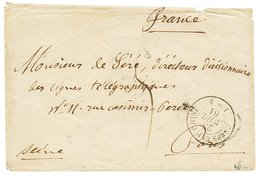 France
Monsieur de Géré, directeur divisionnaire
des lignes télégraphiques
N° 11 rue Casimir Perier
Paris
Seine